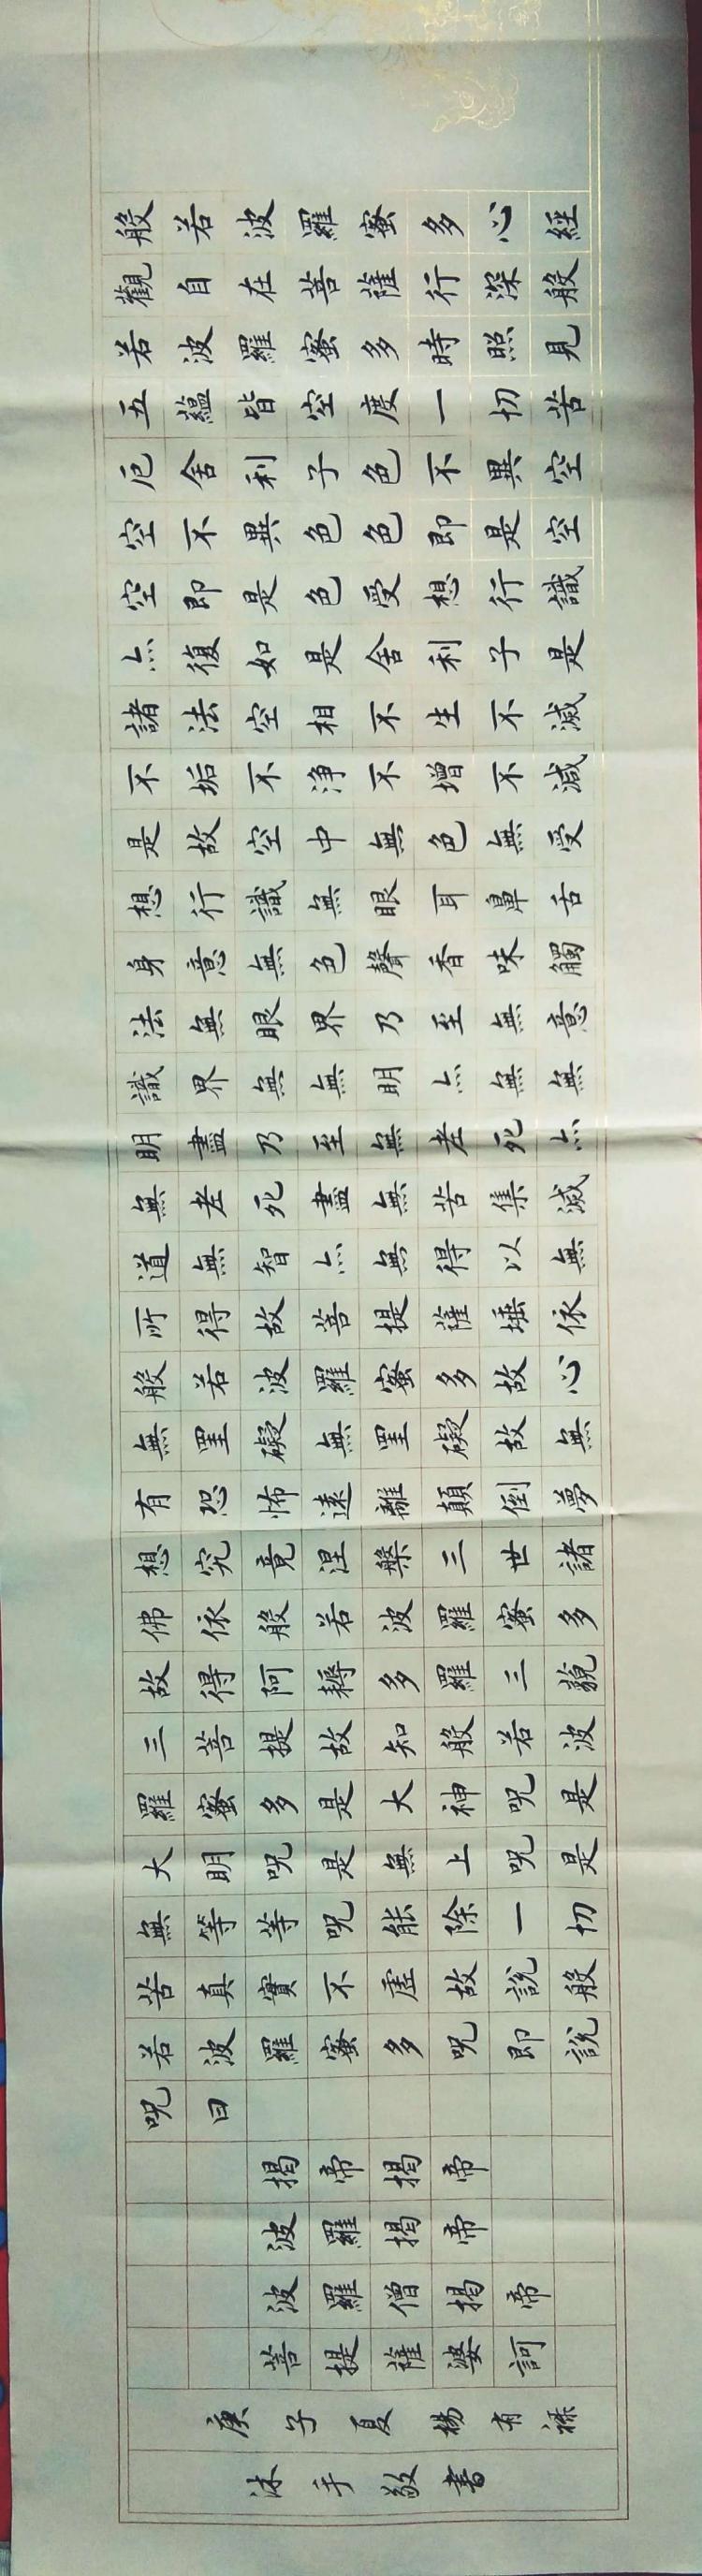 般若波羅蜜多心經
觀自在菩薩行深般
若波羅蜜多時照見
五蘊皆空度一切苦
厄舍利子色不異空
空不異色色即是空
空即是色受想行識
亦復如是舍利子是
諸法空相不生不滅
不垢不淨不增不減
是故空中無色無受
想行識無眼耳鼻舌
身意無色聲香味觸
法無眼界乃至無意
識界無無明亦無無
明盡乃至無老死亦
無老死盡無苦集滅
道無智亦無得以無
所得故菩提薩埵依
般若波羅蜜多故心
無罣礙無罣礙故無
有恐怖遠離顛倒夢
想究竟涅槃三世諸
佛依般若波羅蜜多
故得阿耨多羅三藐
三菩提故知般若波
羅蜜多是大神咒是
大明咒是無上咒是
無等等咒能除一切
苦真實不虛故說般
若波羅蜜多咒即說
咒曰
揭帝揭帝
波羅揭帝
波羅僧揭帝
菩提薩婆訶
庚子夏楊有祿
沐手敬書